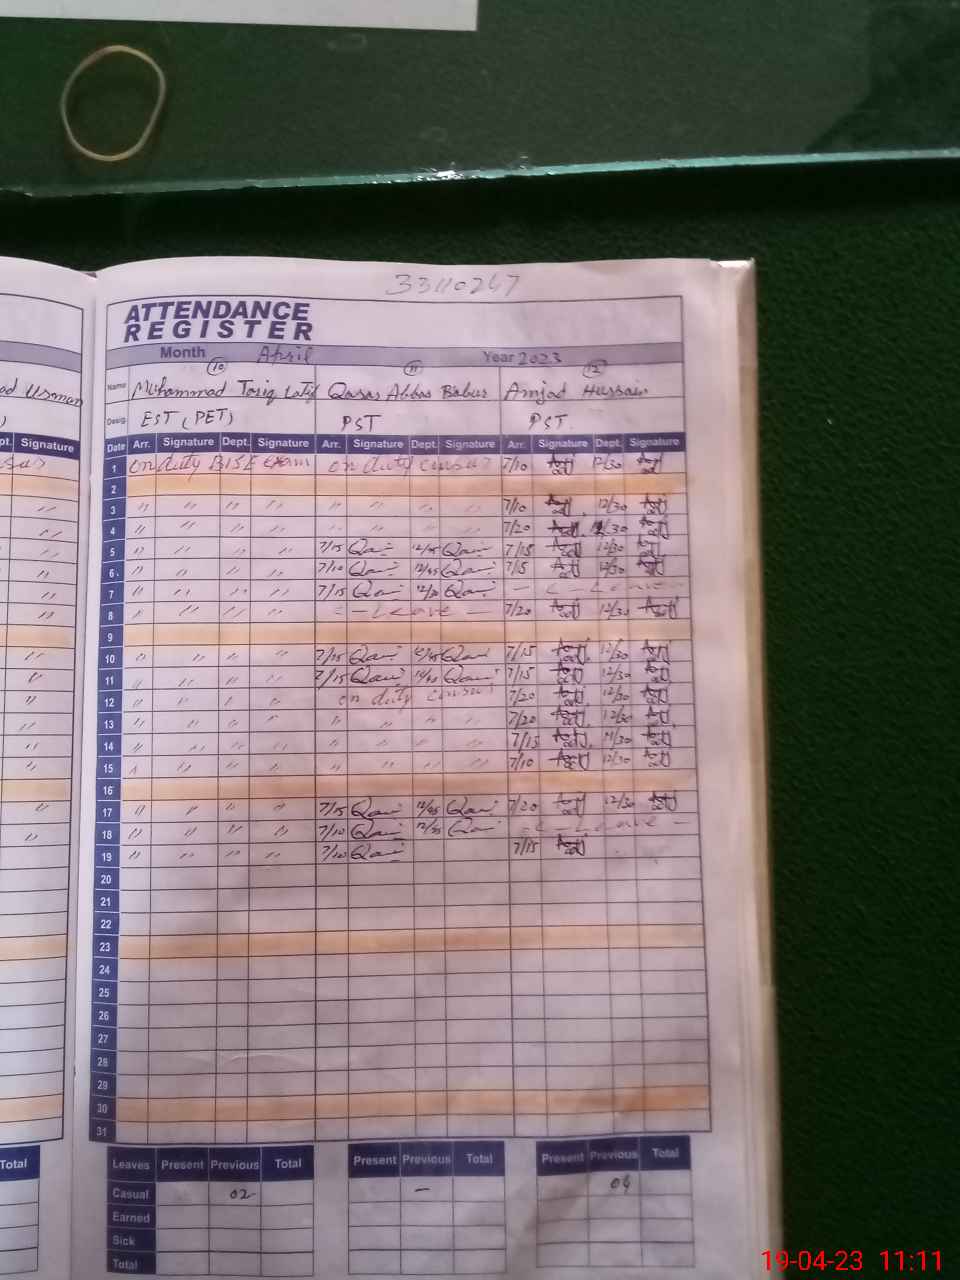 33110247
ATTENDANCE
REGISTER
Month April Year 2023
10 11 12
ad Usman Name Muhammad Tariq Latif Qasar Abbas Babur Amjad Hussain
Desig. EST (PET) PST PST.
pt. Signature Date Arr. Signature Dept. Signature Arr. Signature Dept. Signature Arr. Signature Dept. Signature
1 on duty BISE exam on duty census 7/10 12/30
2
3 " " " " " " " " 7/10 12/30
4 " " " " " " " " 7/20 12/30
5 " " " " 7/15 Qai 12/45 Qai 7/15 12/30
6 " " " " 7/10 Qai 12/45 Qai 7/15 12/30
7 " " " " 7/15 Qai 12/30 Qai — C — Leave —
8 " " " " C — Leave — 7/20 12/30
9
10 " " " " 7/15 Qai 12/45 Qai 7/15 12/30
11 " " " " 7/15 Qai Qai 7/15 12/30
12 " " " " on duty census 7/20 12/30
13 " " " " " " " " 7/20 12/30
14 " " " " " " " " 7/15 12/30
15 " " " " " " " " 7/10 12/30
16
17 " " " " 7/15 Qai 12/45 Qai 7/20 12/30
18 " " " " 7/10 Qai 12/35 Qai — C — Leave —
19 " " " " 7/10 Qai 7/15
20
21
22
23
24
25
26
27
28
29
30
31
Total Leaves Present Previous Total Present Previous Total Present Previous Total
Casual 02 — 04
Earned
Sick
Total
19-04-23 11:11